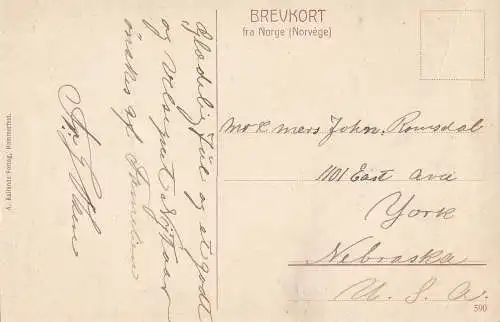 BREVKORT
fra Norge (Norvége)
Glædelig Jul og et godt
og velsignet Nytaar
ønskes af Familien
Mr & mers John. Romsdal
1101 East Ave
York
Nebraska
U. S. A.
590
Forlag, Hammerfest.